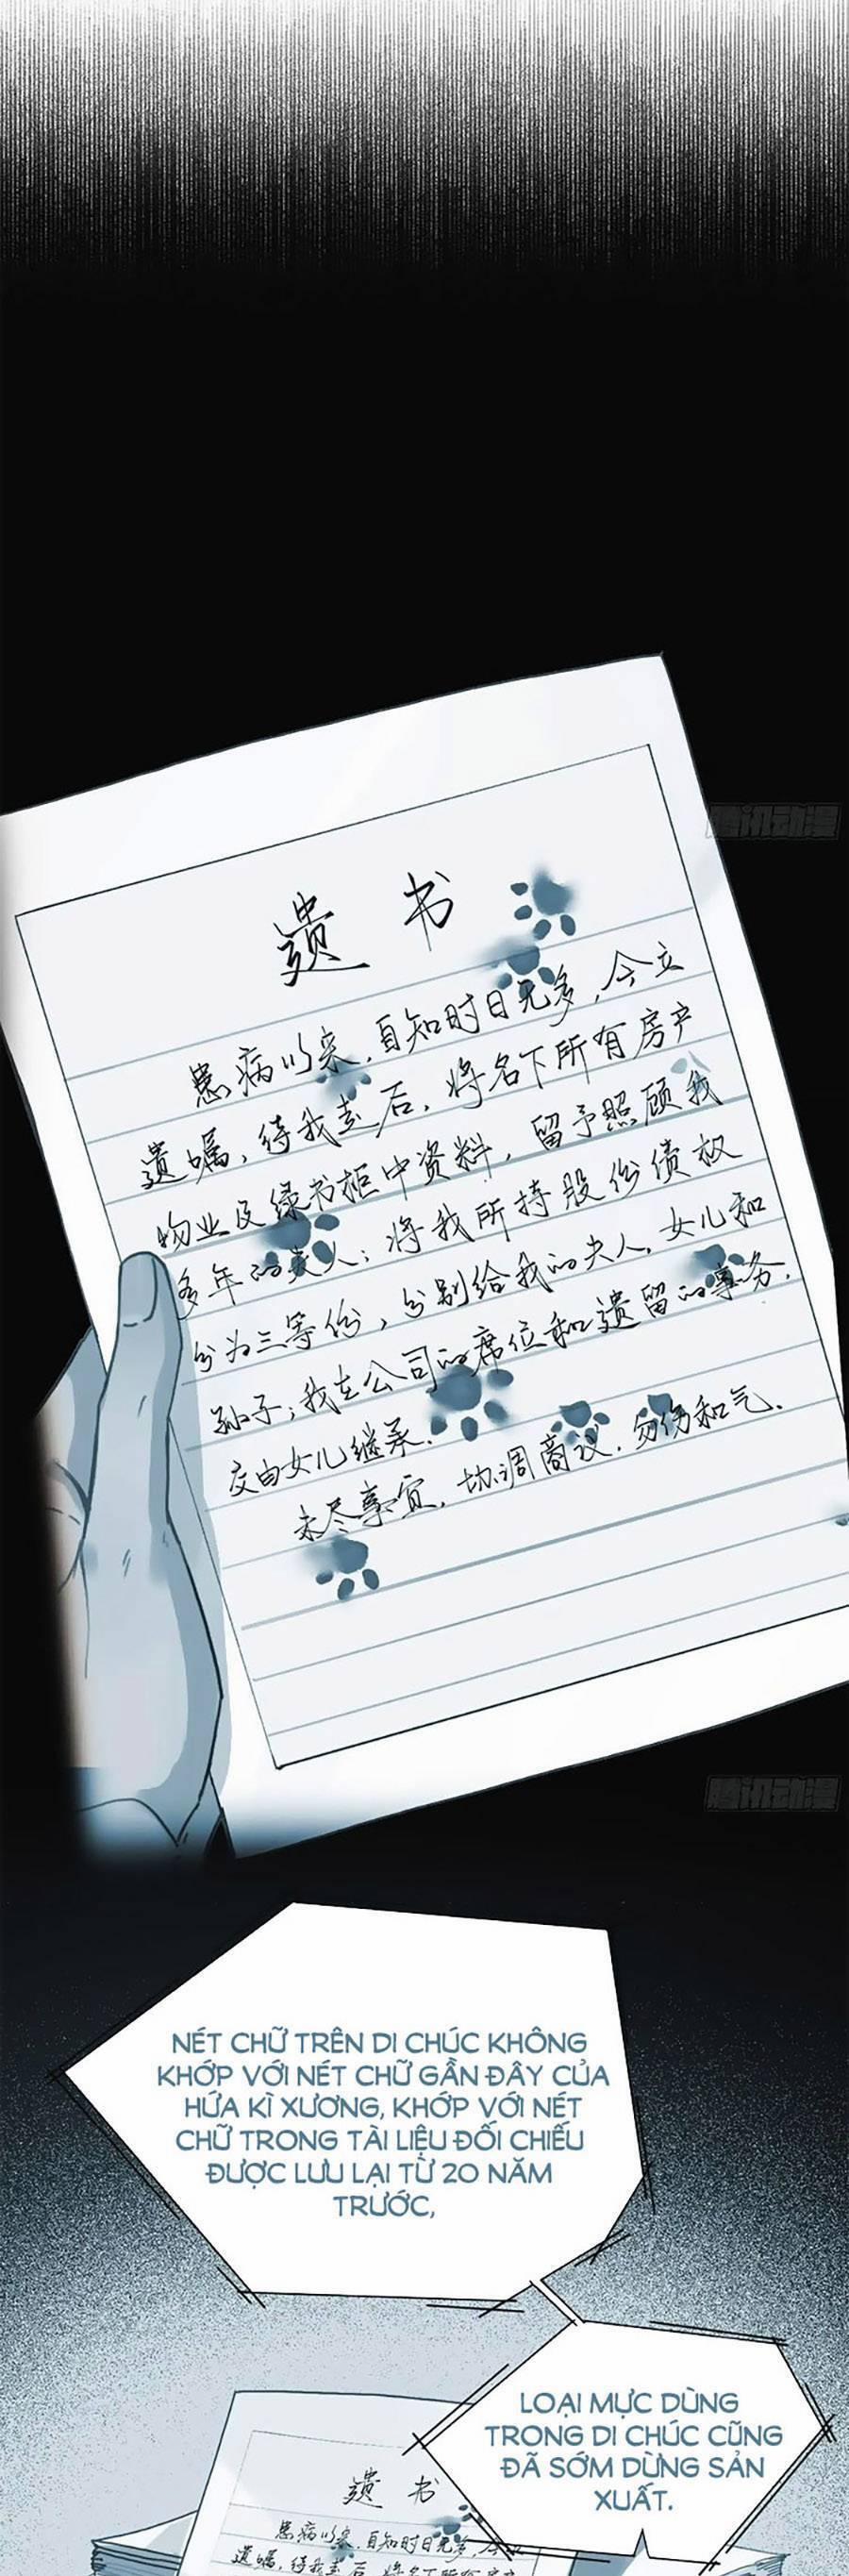 腾讯动漫
遗书
患病以来,自知时日无多,今立
遗嘱,待我去后,将名下所有房产
物业及绿书柜中资料,留予照顾我
多年的夫人;将我所持股份债权
分为三等份,分别给我的夫人,女儿和
孙子;我在公司的席位和遗留的事务,
交由女儿继承.
未尽事宜,协调商议,勿伤和气.
腾讯动漫
NÉT CHỮ TRÊN DI CHÚC KHÔNG
KHỚP VỚI NÉT CHỮ GẦN ĐÂY CỦA
HỨA KÌ XƯƠNG, KHỚP VỚI NÉT
CHỮ TRONG TÀI LIỆU ĐỐI CHIẾU
ĐƯỢC LƯU LẠI TỪ 20 NĂM
TRƯỚC,
LOẠI MỰC DÙNG
TRONG DI CHÚC CŨNG
ĐÃ SỚM DỪNG SẢN
XUẤT.
遗书
患病以来,自知时日无多,今立
遗嘱,待我去后,将名下所有房产